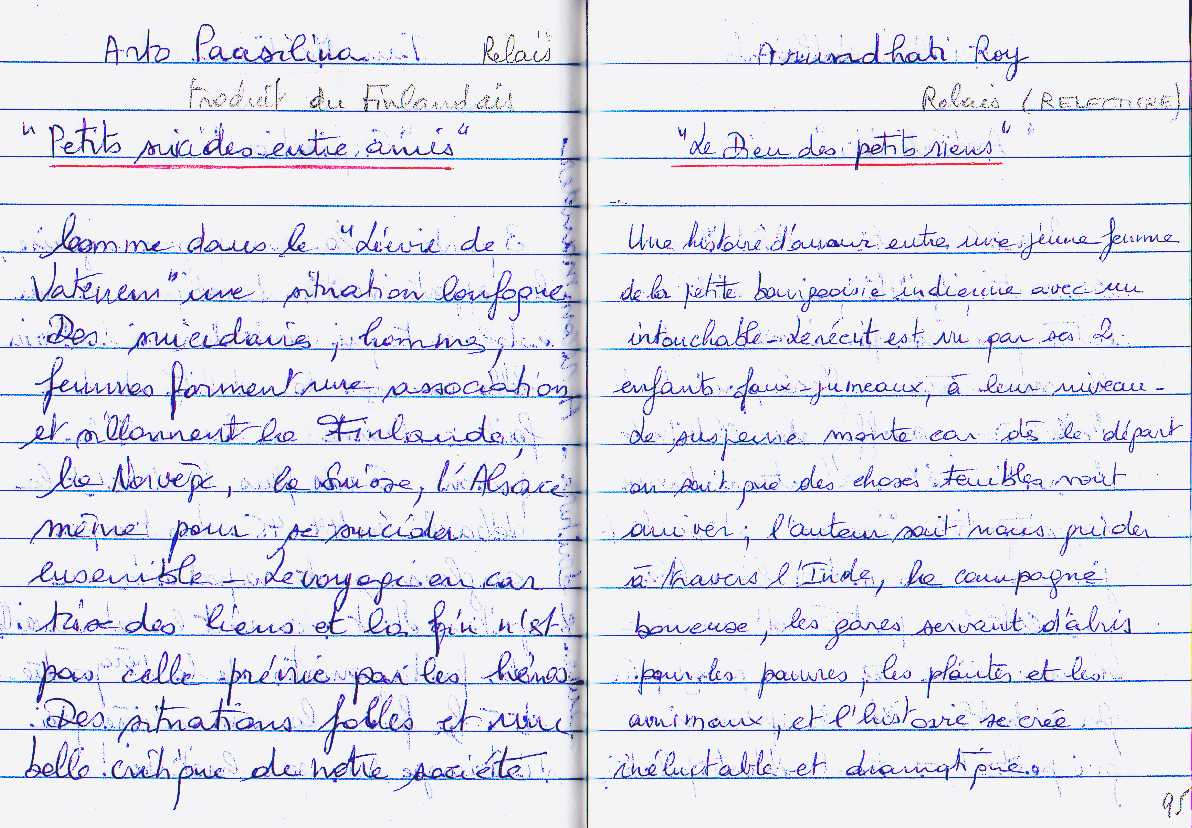 Arto Paasilina Relais
traduit du Finlandais
"Petits suicides entre amis"
Comme dans le "Lièvre de
Vatenem" une situation loufoque
Des suicidaires, hommes,
femmes forment une association
et sillonnent la Finlande,
la Norvège, la Suisse, l'Alsace
même pour se suicider
ensemble - Le voyage en car
tisse des liens et la fin n'est
pas celle prévue par les héros
Des situations folles et une
belle critique de notre société
Arundhati Roy
Relais (RELECTURE)
"Le Dieu des petits riens"
Une histoire d'amour entre une jeune femme
de la petite bourgeoisie indienne avec un
intouchable - Le récit est vu par ses 2
enfants faux-jumeaux, à leur niveau -
Le suspense monte car dès le départ
on sait que des choses terribles vont
arriver ; l'auteur sait nous guider
à travers l'Inde, la campagne
boueuse, les gares servant d'abris
pour les pauvres, les plantes et les
animaux, et l'histoire se crée
inéluctable et dramatique.
95